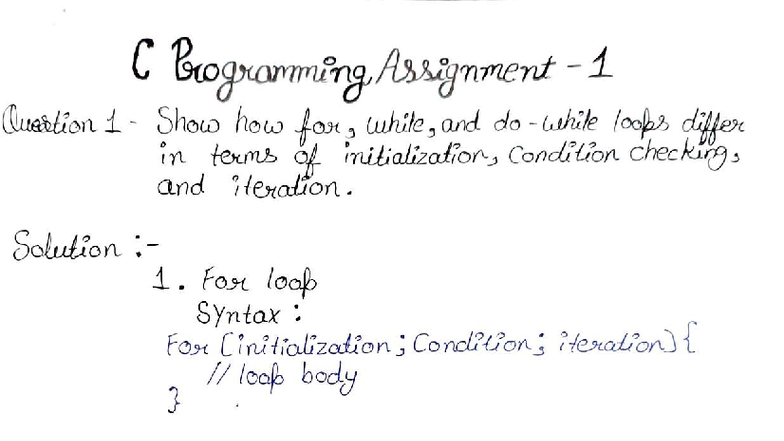 C Programming Assignment - 1
Question 1 - Show how for, while, and do-while loops differ
in terms of initialization, Condition checking,
and iteration.
Solution :-
1. For loop
Syntax :
For (initialization; Condition; iteration) {
// loop body
}